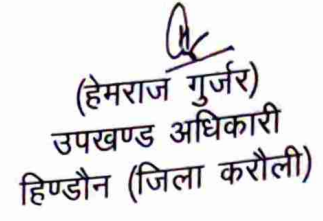 (हेमराज गुर्जर)
उपखण्ड अधिकारी
हिण्डौन (जिला करौली)